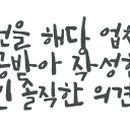 전을 해당 업
공받아 작성
인 솔직한 의견